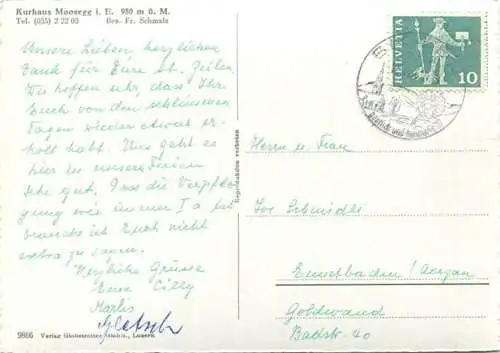 Kurhaus Moosegg i. E. 980 m ü. M.
Tel. (035) 2 22 03 Bes. Fr. Schmalz
Unsere Lieben, herzlichen
Dank für Eure lb. Zeilen.
Wir hoffen nur, dass Ihr
Euch von den schlimmen
Tagen wieder etwas er-
holt habt. Uns geht es
hier in unseren Ferien
sehr gut, dass die Verpfle-
gung wie immer I a ist
brauche ich Euch nicht
extra zu sagen.
Herzliche Grüsse
Eure Cilly
Marlis
9866 Verlag Globetrotter GmbH., Luzern
Reproduktion verboten
HELVETIA
10
Herrn u. Frau
Schmidli
Ennetbaden / Aargau
Goldwand
Badstr. 40